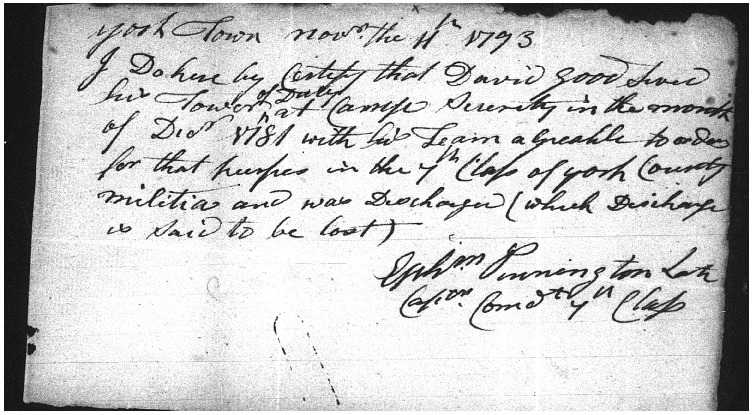 york Town novr. the 11th 1793
I Do here by Certify that David Good Sved
his Tower of Duty at Camp Security in the month
of Decr 1781 with his Team agreable to order
for that purpes in the 7th Class of york County
militia and was Discharged (which Discharge
is Said to be lost)
Ephm Pennington Late
Captn. Comdt 7th Class